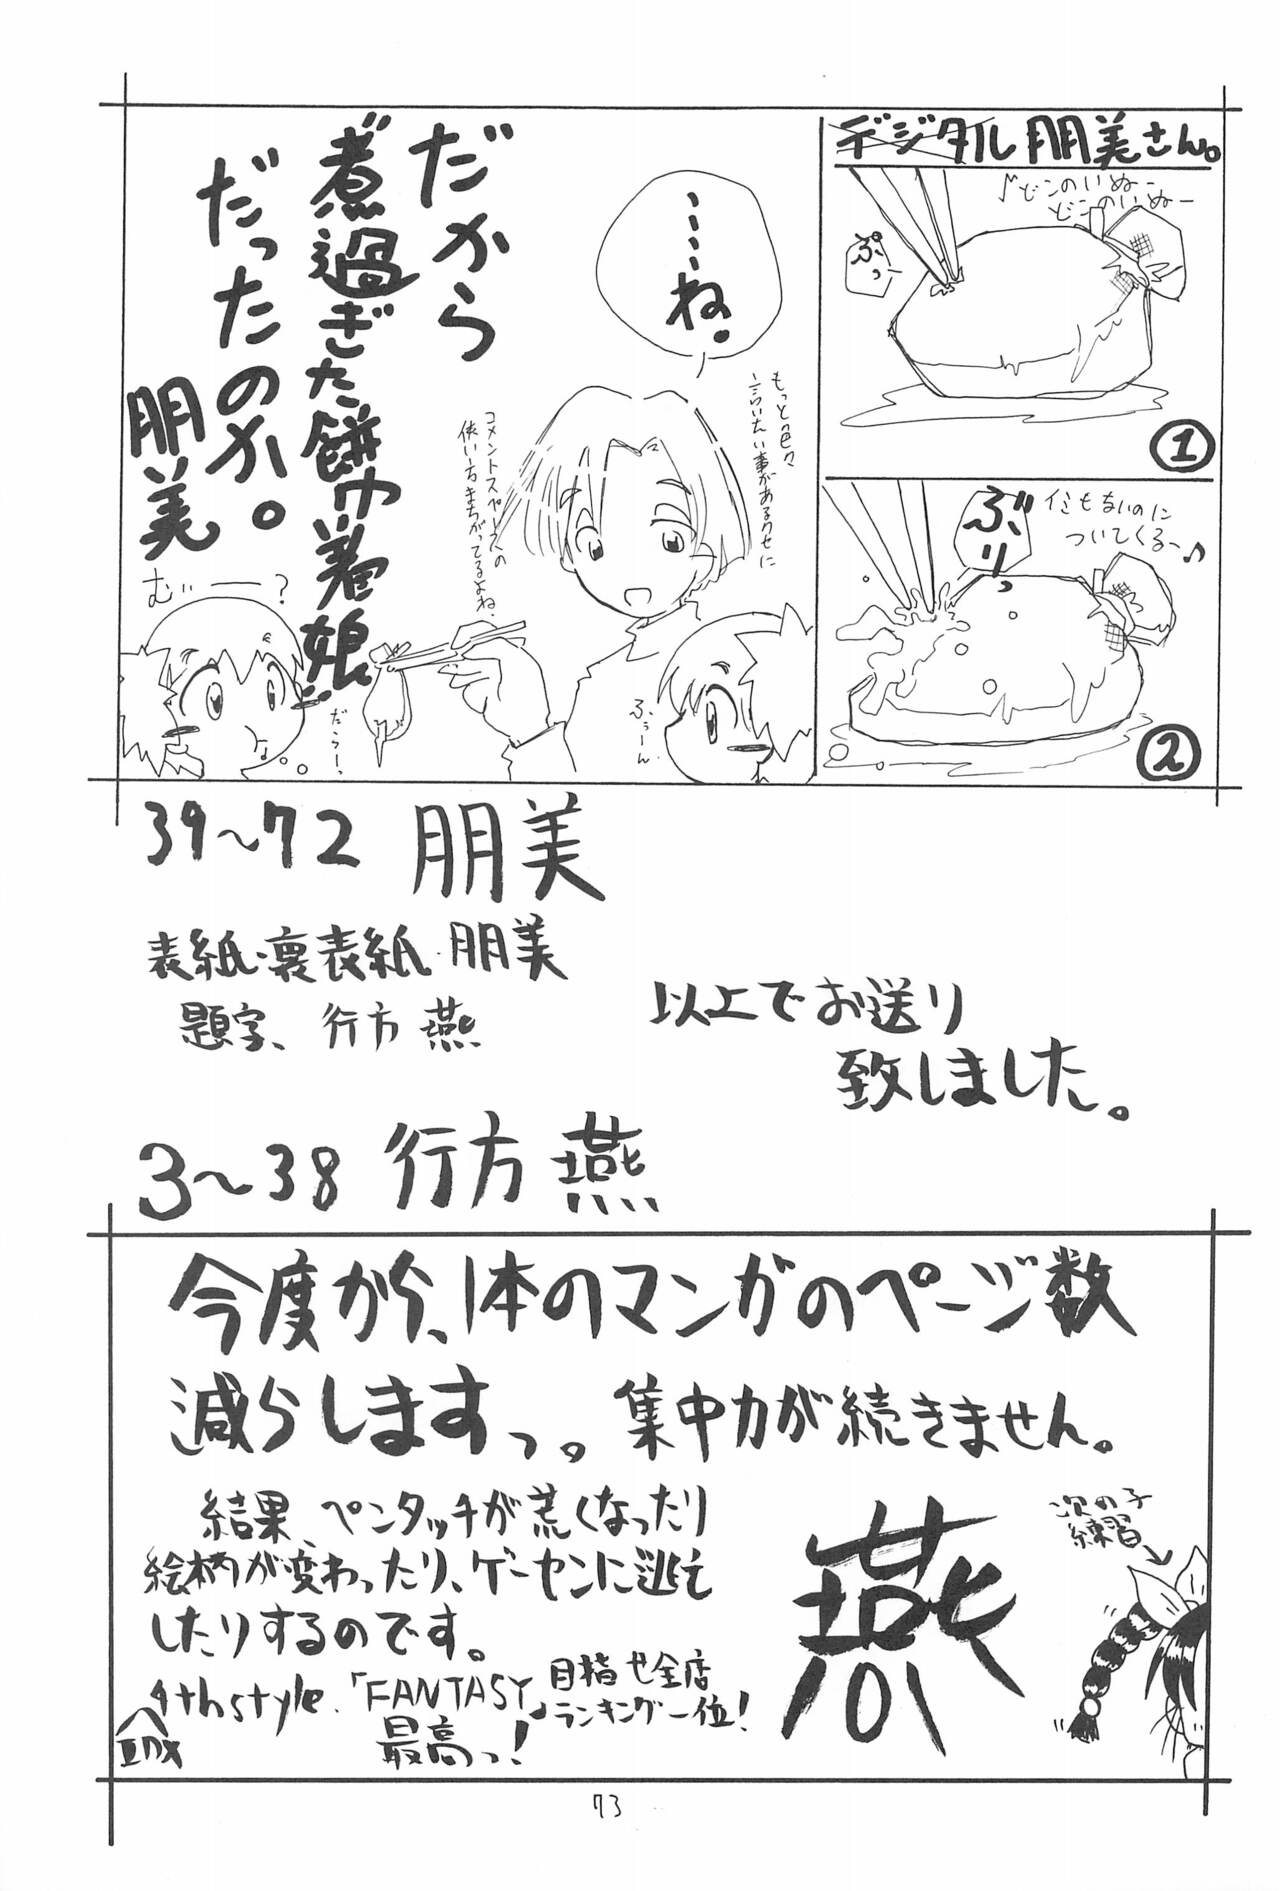 デジタル朋美さん。
♪どこのいぬー
どこのいぬー
ぷっ
①
イミもないのに
ついてくるー♪
ぶりっ
②
……ね。
もっと色々
言いたい事があるクセに
コメントスペースの
使い方まちがってるよね。
だから
"煮過ぎた餅巾着娘"
だったのか。
朋美
むぃー?
だらー、
ふぅーん
39~72 朋美
表紙・裏表紙 朋美
題字、行方 燕
以上でお送り
致しました。
3~38 行方 燕
今度から、1本のマンガのページ数
減らしますっ。集中力が続きません。
結果、ペンタッチが荒くなったり
絵柄が変わったり、ゲーセンに逃亡
したりするのです。
4thstyle.「FANTASY」目指せ全店
最高っ! ランキング一位!
燕
次の子
練習
73